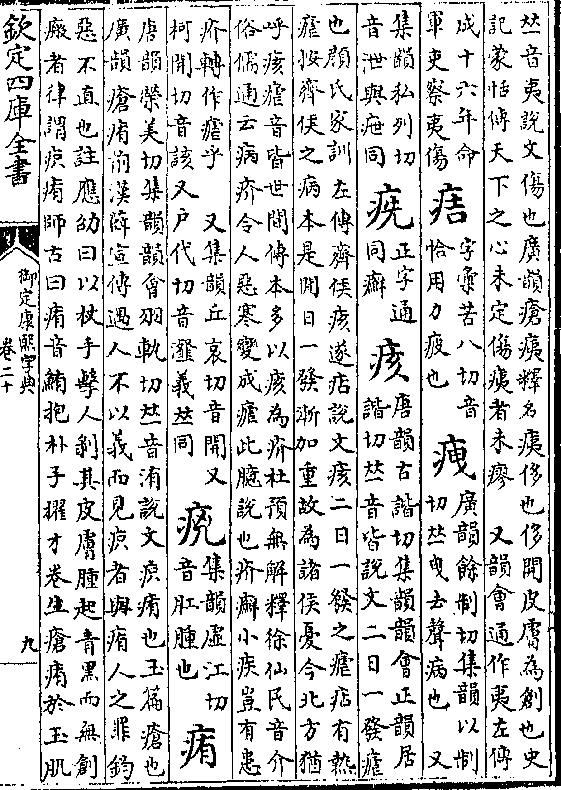 𠀤音夷說文傷也廣韻瘡痍釋名痍侈也侈開皮膚為創也史
記蒙恬傳天下之心未定傷痍者未瘳 又韻會通作夷左傳
成十六年命軍吏察夷傷 𤵹 字彙苦八切音恰用力疲也 㾐 廣韻餘制切集韻以制切𠀤曳去聲病也 又
集韻私列切音泄與疶同 㽻 正字通同癬 痎 唐韻古諧切集韻韻會正韻居諧切𠀤音皆說文二日一發瘧
也顏氏家訓左傳齊侯痎遂痁說文痎二日一發之瘧痁有熱
瘧按齊侯之病本是間日一發漸加重故為諸侯憂今北方猶
呼痎瘧音皆世間傳本多以痎為疥杜預無解釋徐仙民音介
俗儒通云病疥令人惡寒變成瘧此臆說也疥癬小疾豈有患
疥轉作瘧乎 又集韻丘哀切音開又柯開切音該又戶代切音瀣義𠀤同 㽱 集韻虛江切音肛腫也 痏
唐韻榮美切集韻韻會羽軌切𠀤音洧說文疻痏也玉篇瘡也
廣韻瘡痏前漢薛宣傳遇人不以義而見疻者與痏人之罪鈞
惡不直也註應劭曰以杖手擊人剝其皮膚腫起青黑而無創
瘢者律謂疻痏師古曰痏音鮪抱朴子擢才卷生瘡痏於玉肌
欽定四庫全書
御定康熙字典
卷二十
九